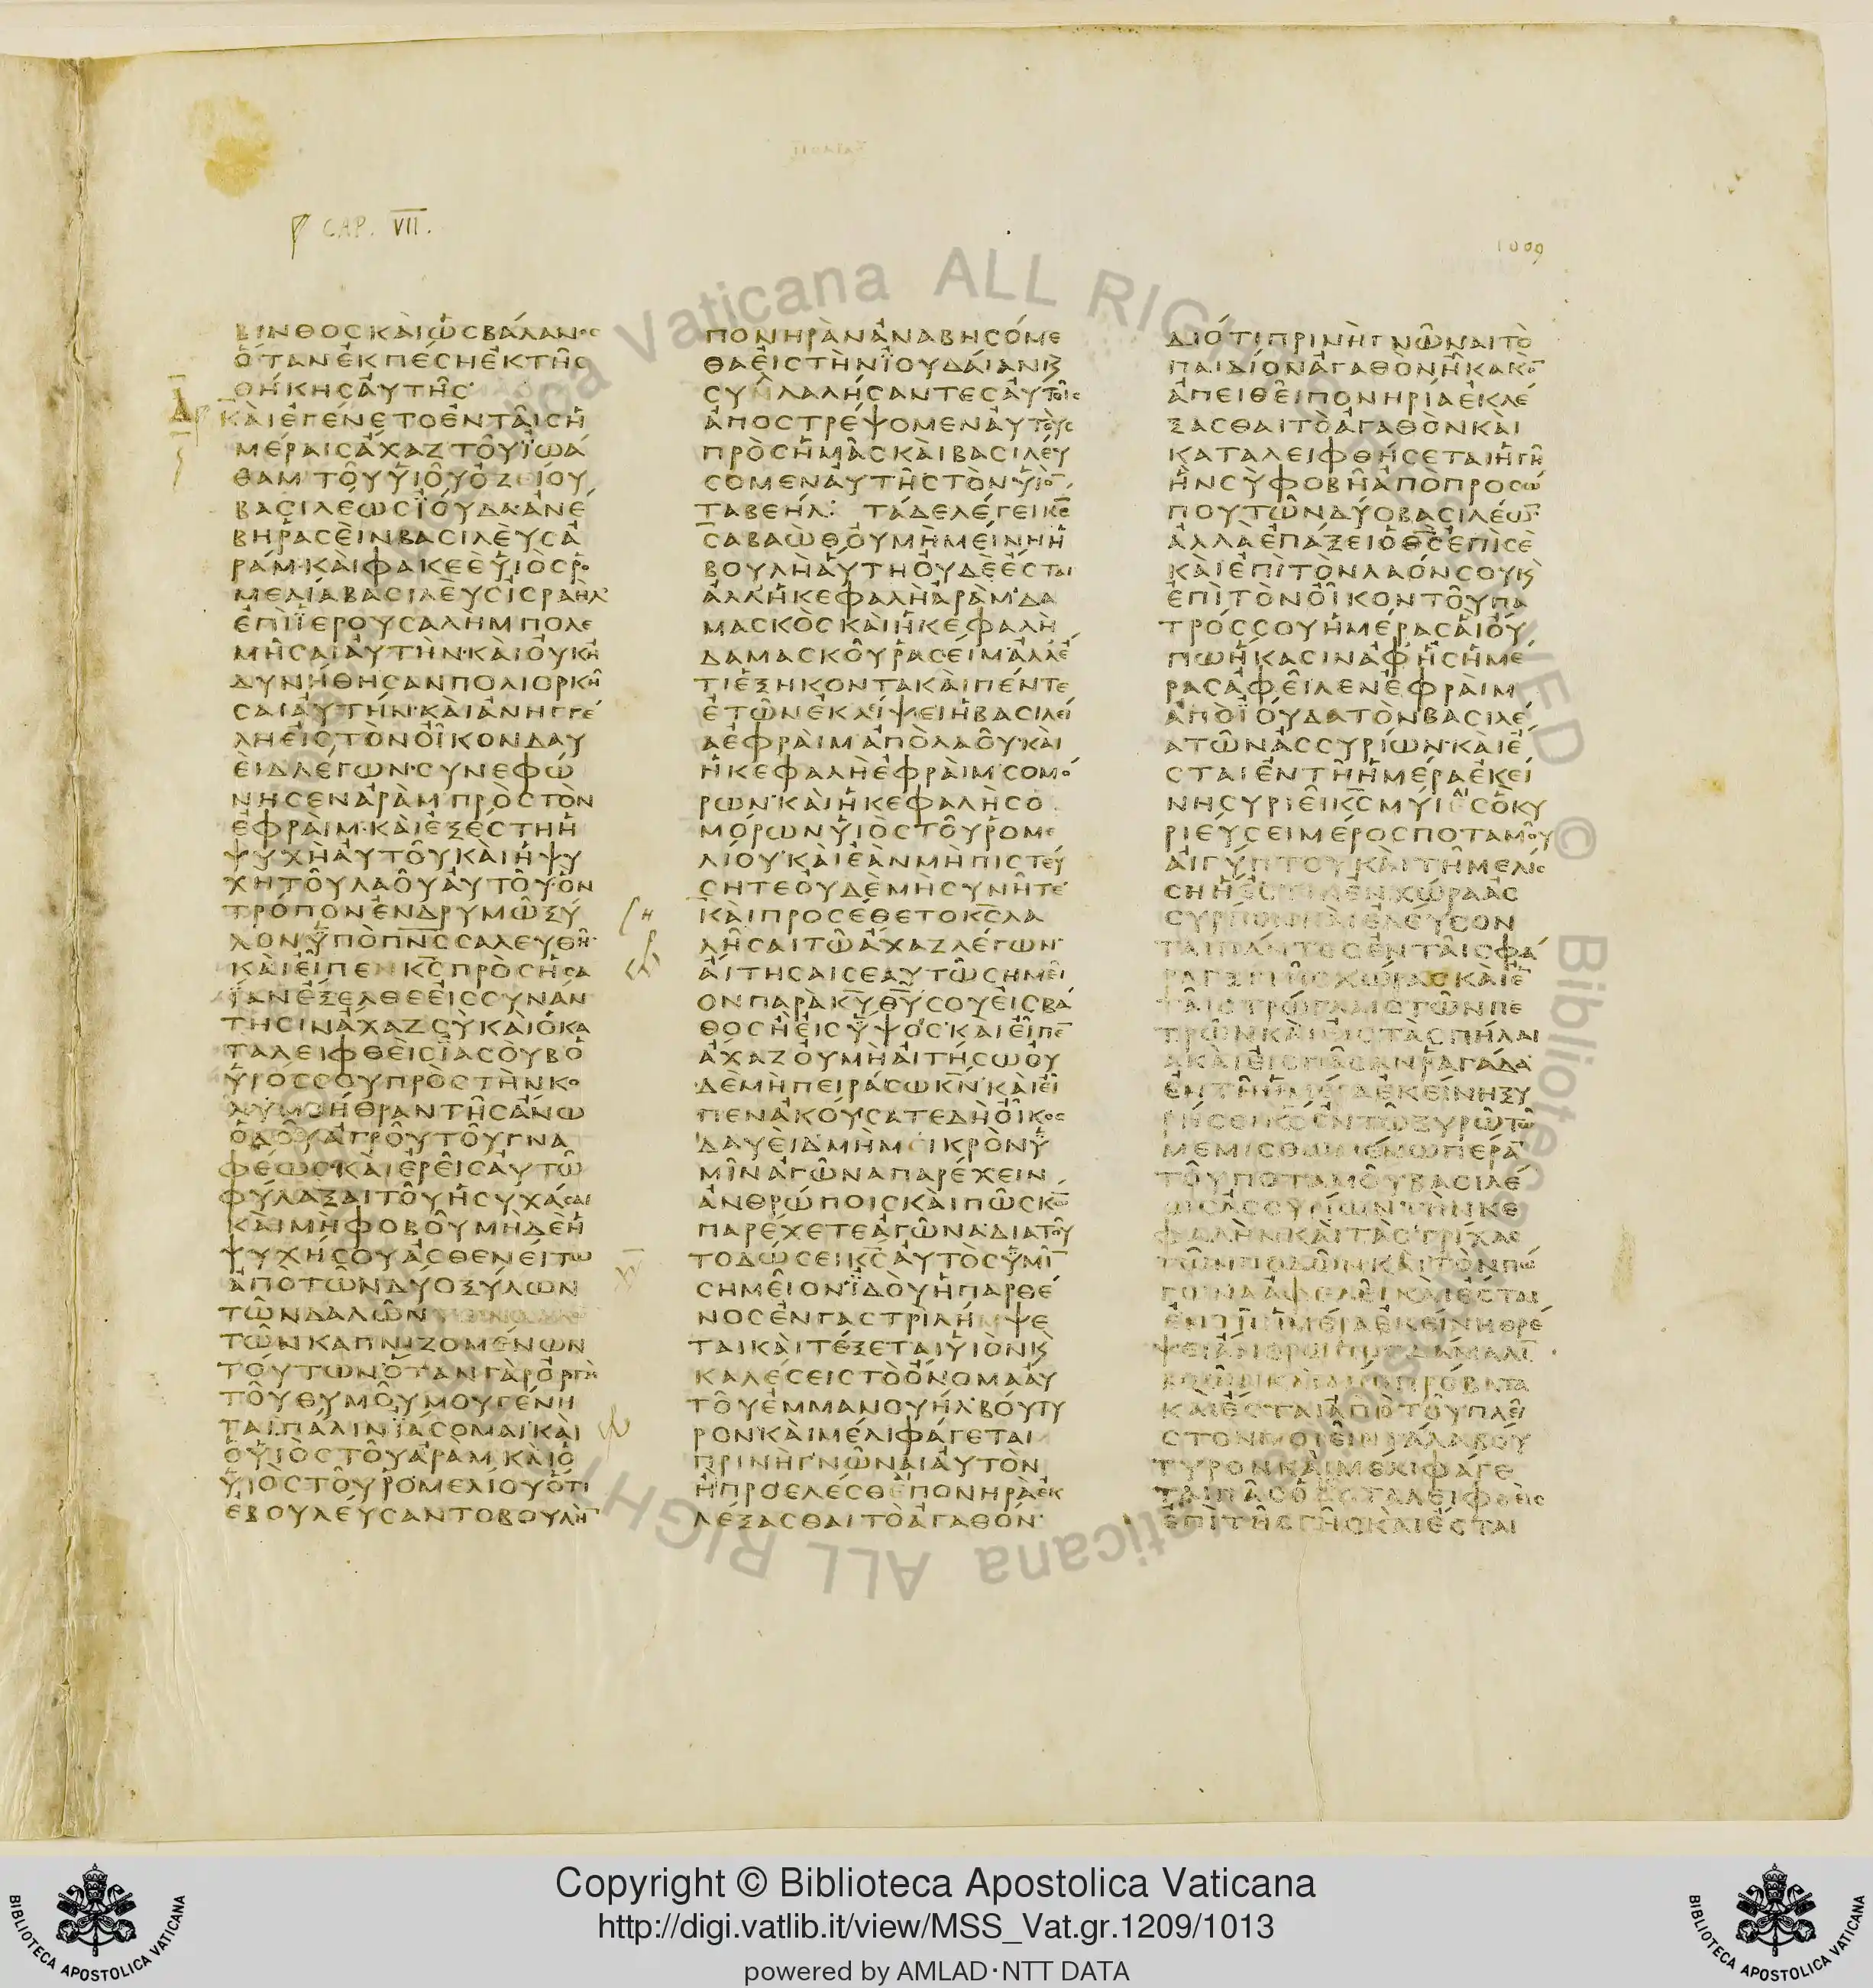 CAP. VII.
1009
ΒΙΝΘΟΣ ΚΑΙ ΩΣ ΒΑΛΑΝΟΣ
ΟΤΑΝ ΕΚΠΕΣΗ ΕΚ ΤΗΣ
ΘΗΚΗΣ ΑΥΤΗΣ
ΚΑΙ ΕΓΕΝΕΤΟ ΕΝ ΤΑΙΣ Η
ΜΕΡΑΙΣ ΑΧΑΖ ΤΟΥ ΙΩΑ
ΘΑΜ ΤΟΥ ΥΙΟΥ ΟΖΕΙΟΥ
ΒΑΣΙΛΕΩΣ ΙΟΥΔΑ ΑΝΕ
ΒΗ ΡΑΣΕΙΝ ΒΑΣΙΛΕΥΣ Α
ΡΑΜ ΚΑΙ ΦΑΚΕΕ ΥΙΟΣ ΡΟ
ΜΕΛΙΑ ΒΑΣΙΛΕΥΣ ΙΣΡΑΗΛ
ΕΠΙ ΙΕΡΟΥΣΑΛΗΜ ΠΟΛΕ
ΜΗΣΑΙ ΑΥΤΗΝ ΚΑΙ ΟΥΚ Η
ΔΥΝΗΘΗΣΑΝ ΠΟΛΙΟΡΚΗ
ΣΑΙ ΑΥΤΗΝ ΚΑΙ ΑΝΗΓΓΕ
ΛΗ ΕΙΣ ΤΟΝ ΟΙΚΟΝ ΔΑΥ
ΕΙΔ ΛΕΓΩΝ ΣΥΝΕΦΩ
ΝΗΣΕΝ ΑΡΑΜ ΠΡΟΣ ΤΟΝ
ΕΦΡΑΙΜ ΚΑΙ ΕΞΕΣΤΗ Η
ΨΥΧΗ ΑΥΤΟΥ ΚΑΙ Η ΨΥ
ΧΗ ΤΟΥ ΛΑΟΥ ΑΥΤΟΥ ΟΝ
ΤΡΟΠΟΝ ΕΝ ΔΡΥΜΩ ΞΥ
ΛΟΝ ΥΠΟ ΠΝΣ ΣΑΛΕΥΘΗ
ΚΑΙ ΕΙΠΕΝ ΚΣ ΠΡΟΣ ΗΣΑ
ΙΑΝ ΕΞΕΛΘΕ ΕΙΣ ΣΥΝΑΝ
ΤΗΣΙΝ ΑΧΑΖ ΣΥ ΚΑΙ Ο ΚΑ
ΤΑΛΕΙΦΘΕΙΣ ΙΑΣΟΥΒ Ο
ΥΙΟΣ ΣΟΥ ΠΡΟΣ ΤΗΝ ΚΟ
ΛΥΜΒΗΘΡΑΝ ΤΗΣ ΑΝΩ
ΟΔΟΥ ΑΓΡΟΥ ΤΟΥ ΓΝΑ
ΦΕΩΣ ΚΑΙ ΕΡΕΙΣ ΑΥΤΩ
ΦΥΛΑΞΑΙ ΤΟΥ ΗΣΥΧΑΣΑΙ
ΚΑΙ ΜΗ ΦΟΒΟΥ ΜΗΔΕ Η
ΨΥΧΗ ΣΟΥ ΑΣΘΕΝΕΙΤΩ
ΑΠΟ ΤΩΝ ΔΥΟ ΞΥΛΩΝ
ΤΩΝ ΔΑΛΩΝ
ΤΩΝ ΚΑΠΝΙΖΟΜΕΝΩΝ
ΤΟΥΤΩΝ ΟΤΑΝ ΓΑΡ ΟΡΓΗ
ΤΟΥ ΘΥΜΟΥ ΜΟΥ ΓΕΝΗ
ΤΑΙ ΠΑΛΙΝ ΙΑΣΟΜΑΙ ΚΑΙ
Ο ΥΙΟΣ ΤΟΥ ΑΡΑΜ ΚΑΙ Ο
ΥΙΟΣ ΤΟΥ ΡΟΜΕΛΙΟΥ ΟΤΙ
ΕΒΟΥΛΕΥΣΑΝΤΟ ΒΟΥΛΗΝ
ΠΟΝΗΡΑΝ ΑΝΑΒΗΣΟΜΕ
ΘΑ ΕΙΣ ΤΗΝ ΙΟΥΔΑΙΑΝ Κ
ΣΥΛΛΑΛΗΣΑΝΤΕΣ ΑΥΤΟΙΣ
ΑΠΟΣΤΡΕΨΟΜΕΝ ΑΥΤΟΥΣ
ΠΡΟΣ ΗΜΑΣ ΚΑΙ ΒΑΣΙΛΕΥ
ΣΟΜΕΝ ΑΥΤΗΣ ΤΟΝ ΥΙΟΝ
ΤΑΒΕΗΛ ΤΑΔΕ ΛΕΓΕΙ ΚΣ
ΣΑΒΑΩΘ ΟΥ ΜΗ ΜΕΙΝΗ Η
ΒΟΥΛΗ ΑΥΤΗ ΟΥΔΕ ΕΣΤΑΙ
ΑΛΛ Η ΚΕΦΑΛΗ ΑΡΑΜ ΔΑ
ΜΑΣΚΟΣ ΚΑΙ Η ΚΕΦΑΛΗ
ΔΑΜΑΣΚΟΥ ΡΑΣΕΙΜ ΑΛΛ Ε
ΤΙ ΕΞΗΚΟΝΤΑ ΚΑΙ ΠΕΝΤΕ
ΕΤΩΝ ΕΚΛΙΨΕΙ Η ΒΑΣΙΛΕΙ
Α ΕΦΡΑΙΜ ΑΠΟ ΛΑΟΥ ΚΑΙ
Η ΚΕΦΑΛΗ ΕΦΡΑΙΜ ΣΟΜΟ
ΡΩΝ ΚΑΙ Η ΚΕΦΑΛΗ ΣΟ
ΜΟΡΩΝ ΥΙΟΣ ΤΟΥ ΡΟΜΕ
ΛΙΟΥ ΚΑΙ ΕΑΝ ΜΗ ΠΙΣΤΕΥ
ΣΗΤΕ ΟΥΔΕ ΜΗ ΣΥΝΗΤΕ
ΚΑΙ ΠΡΟΣΕΘΕΤΟ ΚΣ ΛΑ
ΛΗΣΑΙ ΤΩ ΑΧΑΖ ΛΕΓΩΝ
ΑΙΤΗΣΑΙ ΣΕΑΥΤΩ ΣΗΜΕΙ
ΟΝ ΠΑΡΑ ΚΥ ΘΥ ΣΟΥ ΕΙΣ ΒΑ
ΘΟΣ Η ΕΙΣ ΥΨΟΣ ΚΑΙ ΕΙΠΕΝ
ΑΧΑΖ ΟΥ ΜΗ ΑΙΤΗΣΩ ΟΥ
ΔΕ ΜΗ ΠΕΙΡΑΣΩ ΚΝ ΚΑΙ ΕΙ
ΠΕΝ ΑΚΟΥΣΑΤΕ ΔΗ ΟΙΚΟΣ
ΔΑΥΕΙΔ ΜΗ ΜΕΙΚΡΟΝ Υ
ΜΙΝ ΑΓΩΝΑ ΠΑΡΕΧΕΙΝ
ΑΝΘΡΩΠΟΙΣ ΚΑΙ ΠΩΣ ΚΩ
ΠΑΡΕΧΕΤΕ ΑΓΩΝΑ ΔΙΑ ΤΟΥ
ΤΟ ΔΩΣΕΙ ΚΣ ΑΥΤΟΣ ΥΜΙΝ
ΣΗΜΕΙΟΝ ΙΔΟΥ Η ΠΑΡΘΕ
ΝΟΣ ΕΝ ΓΑΣΤΡΙ ΛΗΜΨΕ
ΤΑΙ ΚΑΙ ΤΕΞΕΤΑΙ ΥΙΟΝ Κ
ΚΑΛΕΣΕΙΣ ΤΟ ΟΝΟΜΑ ΑΥ
ΤΟΥ ΕΜΜΑΝΟΥΗΛ ΒΟΥΤΥ
ΡΟΝ ΚΑΙ ΜΕΛΙ ΦΑΓΕΤΑΙ
ΠΡΙΝ Η ΓΝΩΝΑΙ ΑΥΤΟΝ
Η ΠΡΟΕΛΕΣΘΕ ΠΟΝΗΡΑ ΕΚ
ΛΕΞΑΣΘΑΙ ΤΟ ΑΓΑΘΟΝ
ΔΙΟΤΙ ΠΡΙΝ Η ΓΝΩΝΑΙ ΤΟ
ΠΑΙΔΙΟΝ ΑΓΑΘΟΝ Η ΚΑΚΟΝ
ΑΠΕΙΘΕΙ ΠΟΝΗΡΙΑ ΕΚΛΕ
ΞΑΣΘΑΙ ΤΟ ΑΓΑΘΟΝ ΚΑΙ
ΚΑΤΑΛΕΙΦΘΗΣΕΤΑΙ Η ΓΗ
ΗΝ ΣΥ ΦΟΒΗ ΑΠΟ ΠΡΟΣΩ
ΠΟΥ ΤΩΝ ΔΥΟ ΒΑΣΙΛΕΩΝ
ΑΛΛΑ ΕΠΑΞΕΙ Ο ΘΣ ΕΠΙ ΣΕ
ΚΑΙ ΕΠΙ ΤΟΝ ΛΑΟΝ ΣΟΥ Κ
ΕΠΙ ΤΟΝ ΟΙΚΟΝ ΤΟΥ ΠΑ
ΤΡΟΣ ΣΟΥ ΗΜΕΡΑΣ ΑΙ ΟΥ
ΠΩ ΗΚΑΣΙΝ ΑΦ ΗΣ ΗΜΕ
ΡΑΣ ΑΦΕΙΛΕΝ ΕΦΡΑΙΜ
ΑΠΟ ΙΟΥΔΑ ΤΟΝ ΒΑΣΙΛΕ
Α ΤΩΝ ΑΣΣΥΡΙΩΝ ΚΑΙ Ε
ΣΤΑΙ ΕΝ ΤΗ ΗΜΕΡΑ ΕΚΕΙ
ΝΗ ΣΥΡΙΕΙ ΚΣ ΜΥΙΑΙΣ Ο ΚΥ
ΡΙΕΥΣΕΙ ΜΕΡΟΣ ΠΟΤΑΜΟΥ
ΑΙΓΥΠΤΟΥ ΚΑΙ ΤΗ ΜΕΛΙΣ
ΣΗ Η ΕΣΤΙΝ ΕΝ ΧΩΡΑ ΑΣ
ΣΥΡΙΩΝ ΚΑΙ ΕΛΕΥΣΟΝ
ΤΑΙ ΠΑΝΤΕΣ ΕΝ ΤΑΙΣ ΦΑ
ΡΑΓΞΙ ΤΗΣ ΧΩΡΑΣ ΚΑΙ Ε
ΤΑΙΣ ΤΡΩΓΛΑΙΣ ΤΩΝ ΠΕ
ΤΡΩΝ ΚΑΙ ΕΙΣ ΤΑ ΣΠΗΛΑΙ
Α ΚΑΙ ΕΙΣ ΠΑΣΑΝ ΡΑΓΑΔΑ
ΕΝ ΤΗ ΗΜΕΡΑ ΕΚΕΙΝΗ ΞΥ
ΡΗΣΕΙ ΚΣ ΕΝ ΤΩ ΞΥΡΩ ΤΩ
ΜΕΜΙΣΘΩΜΕΝΩ ΠΕΡΑ
ΤΟΥ ΠΟΤΑΜΟΥ ΒΑΣΙΛΕ
ΩΣ ΑΣΣΥΡΙΩΝ ΤΗΝ ΚΕ
ΦΑΛΗΝ ΚΑΙ ΤΑΣ ΤΡΙΧΑΣ
ΤΩΝ ΠΟΔΩΝ ΚΑΙ ΤΟΝ ΠΩ
ΓΩΝΑ ΑΦΕΛΕΙ ΚΑΙ ΕΣΤΑΙ
ΕΝ ΤΗ ΗΜΕΡΑ ΕΚΕΙΝΗ ΘΡΕ
ΨΕΙ ΑΝΘΡΩΠΟΣ ΔΑΜΑΛΙΝ
ΒΟΩΝ ΚΑΙ ΔΥΟ ΠΡΟΒΑΤΑ
ΚΑΙ ΕΣΤΑΙ ΑΠΟ ΤΟΥ ΠΛΕΙ
ΣΤΟΝ ΠΟΙΕΙΝ ΓΑΛΑ ΒΟΥ
ΤΥΡΟΝ ΚΑΙ ΜΕΛΙ ΦΑΓΕ
ΤΑΙ ΠΑΣ Ο ΚΑΤΑΛΕΙΦΘΕΙΣ
ΕΠΙ ΤΗΣ ΓΗΣ ΚΑΙ ΕΣΤΑΙ
Vaticana ALL RIGHTS RESERVED © Biblioteca Apostolica Vaticana ALL RIGH
Copyright © Biblioteca Apostolica Vaticana
http://digi.vatlib.it/view/MSS_Vat.gr.1209/1013
powered by AMLAD·NTT DATA
BIBLIOTECA APOSTOLICA VATICANA
BIBLIOTECA APOSTOLICA VATICANA